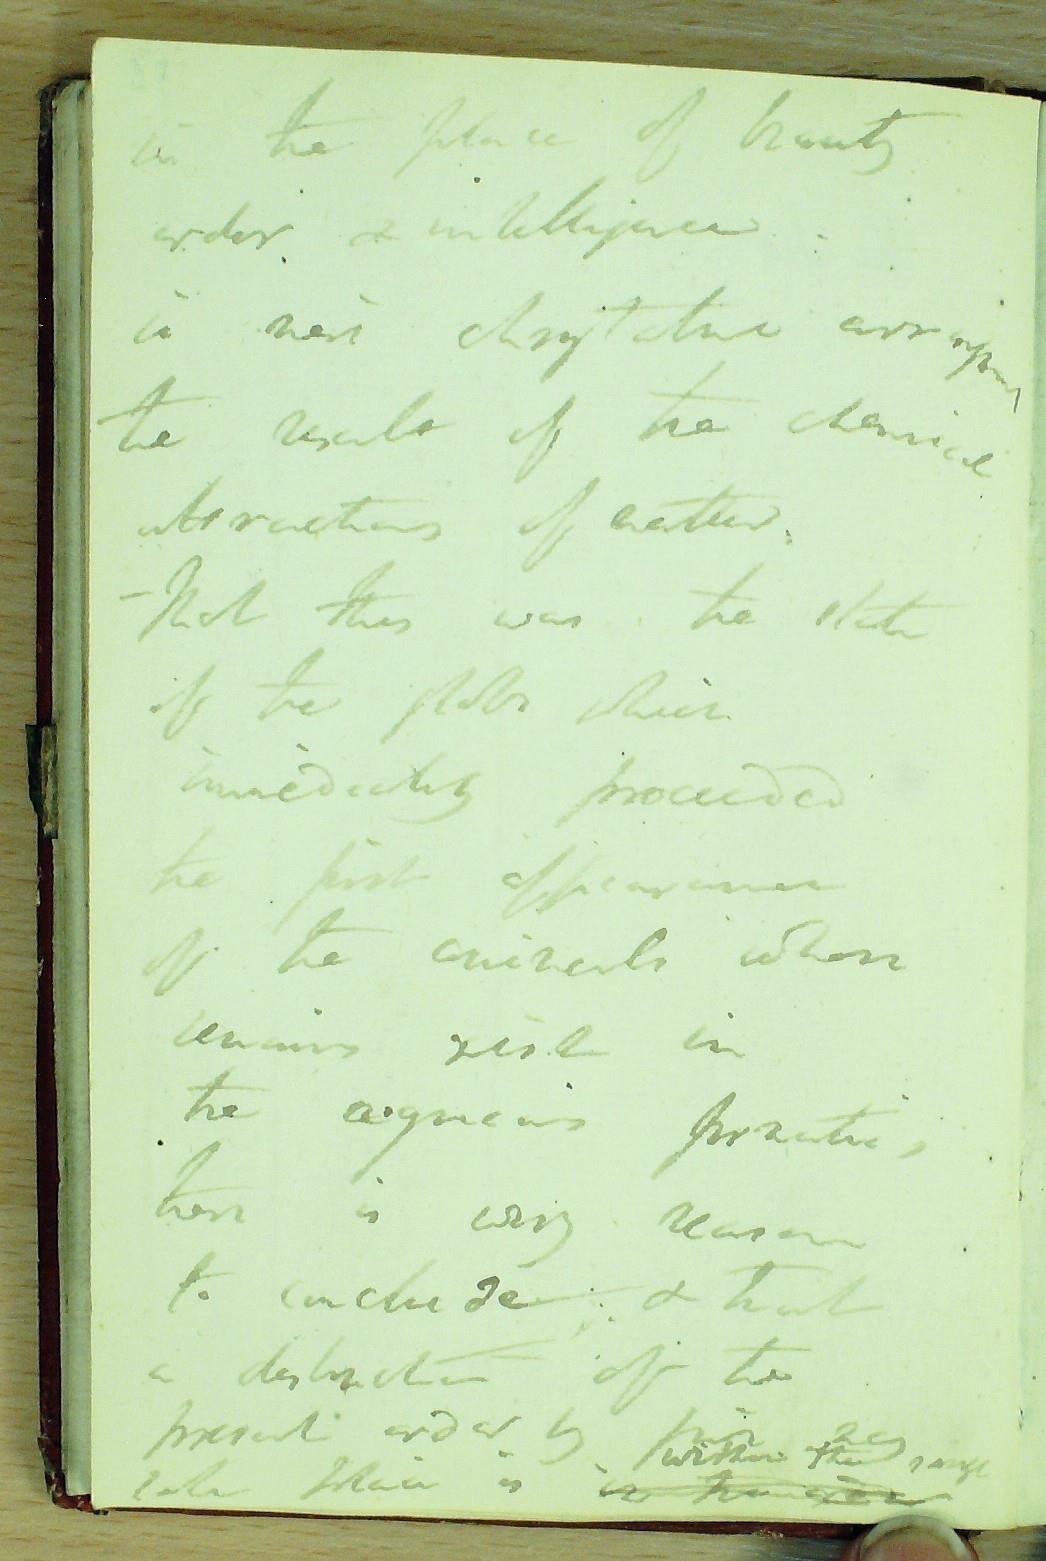 in the place of beauty
order & intelligence.
is not
the result of the chemical
attractions of matter.
That this was the state
of the globe which
immediately proceeded
the first appearance
of the animals whose
remains exist in
the aqueous formations,
there is every reason
to conclude; & that
a destruction of the
present order by fire may
take place is within the range